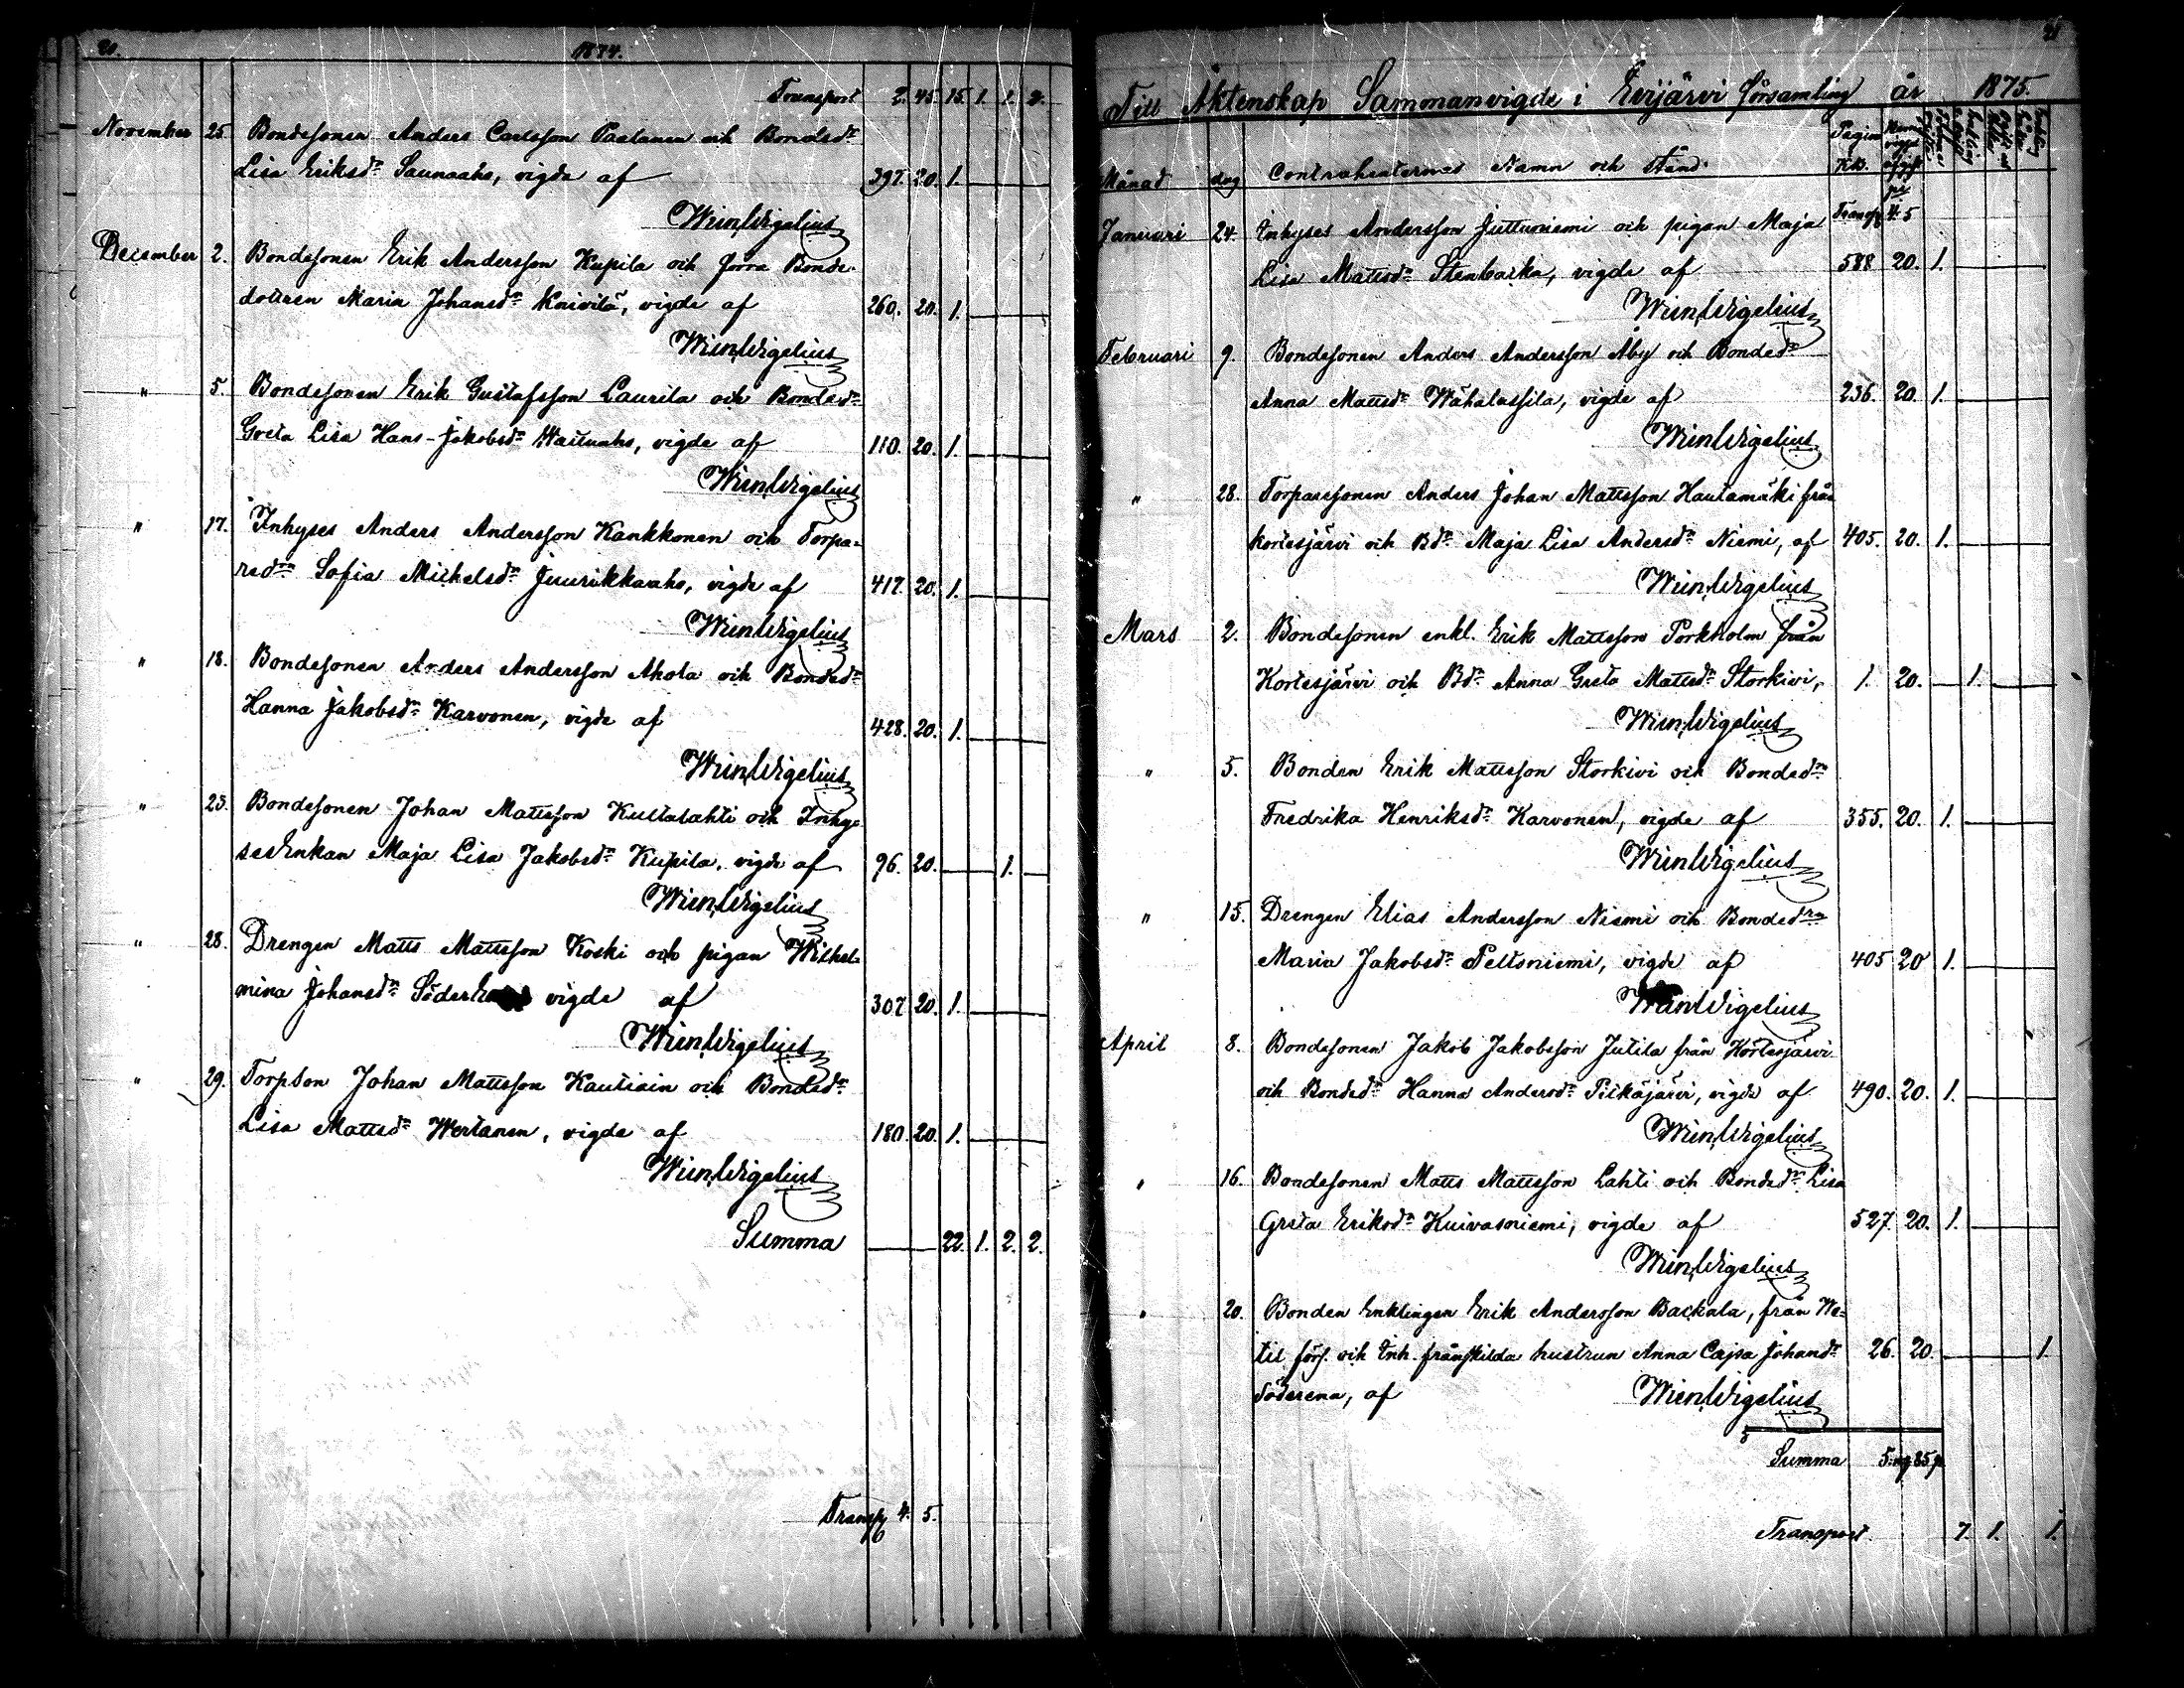 20.
1874.
Transport 2. 45. 15. 1. 1. 2.
November 25. Bondesonen Anders Carlsson Paalanen och Bondedn
Lisa Eriksdn Saunaaho, vigde af 397. 20. 1.
Wigelius
December 2. Bondesonen Erik Andersson Kupila och förra Bonde-
dottren Maria Johansdn Knivilä, vigde af 260. 20. 1.
Wigelius
" 5. Bondesonen Erik Gustafsson Laurila och Bondedn
Greta Lisa Hans-Jakobsdn Wattuaho, vigde af 110. 20. 1.
Wigelius
" 17. Inhyses Anders Andersson Kankkonen och Torpa-
redrn Sofia Michelsdn Juurikkaaho, vigde af 417. 20. 1.
Wigelius
" 18. Bondesonen Anders Andersson Ahola och Bondedn
Hanna Jakobsdn Karvonen, vigde af 428. 20. 1.
Wigelius
" 25. Bondesonen Johan Mattsson Kultalahti och Inhy-
sesEnkan Maja Lisa Jakobsdn Kupila, vigde af 96. 20. 1.
Wigelius
" 28. Drengen Matts Mattsson Koski och pigan Wilhel-
mina Johansdn vigde af 307 20. 1.
Wigelius
" 29. Torpson Johan Mattsson Kautiain och Bondedn
Lisa Mattsdn Wertanen, vigde af 180. 20. 1.
Wigelius
Summa 22. 1. 2. 2.
Transp 4. 5.
21
Till Äktenskap Sammanvigde i Evijärvi församling år 1875.
Månad dag Contrahenternes Namn och stånd. Pagina Kb.
Transp 4. 5
Januari 24. Inhyses Andersson Juttuniemi och pigan Maja
Lisa Mattsdn Stenbacka, vigde af 588 20. 1.
Wigelius
Februari 9. Bondesonen Anders Andersson Åby och Bondedn
Anna Mattsdn Wähälassila, vigde af 236. 20. 1.
Wigelius
" 28. Torparesonen Anders Johan Mattsson Hautamäki från
Kortesjärvi och Bdn Maja Lisa Andersdn Niemi, af 405. 20. 1.
Wigelius
Mars 2. Bondesonen enkl. Erik Mattsson Porkholm från
Kortesjärvi och Bdn Anna Greta Mattsdn Storkivi, 1. 20. 1.
Wigelius
" 5. Bonden Erik Mattsson Storkivi och Bondedn
Fredrika Henriksdn Karvonen, vigde af 355. 20. 1.
Wigelius
" 15. Drengen Elias Andersson Niemi och Bondedrn
Maria Jakobsdn Peltoniemi, vigde af 405 20 1.
Wigelius
April 8. Bondesonen Jakob Jakobsson Jutila från Kortesjärvi
och Bondedn Hanna Andersdn Pitkäjärvi, vigde af 490. 20. 1.
Wigelius
" 16. Bondesonen Matts Mattsson Lahti och Bondedn Lisa
Greta Eriksdn Kuivasniemi, vigde af 527. 20. 1.
Wigelius
" 20. Bonden Enklingen Erik Andersson Backala, från We-
til förs. och Inh. frånskilda hustrun Anna Cajsa Johansdn 26. 20. 1.
af Wigelius
Summa 5 mk 85 p
Transport 7. 1. 1.